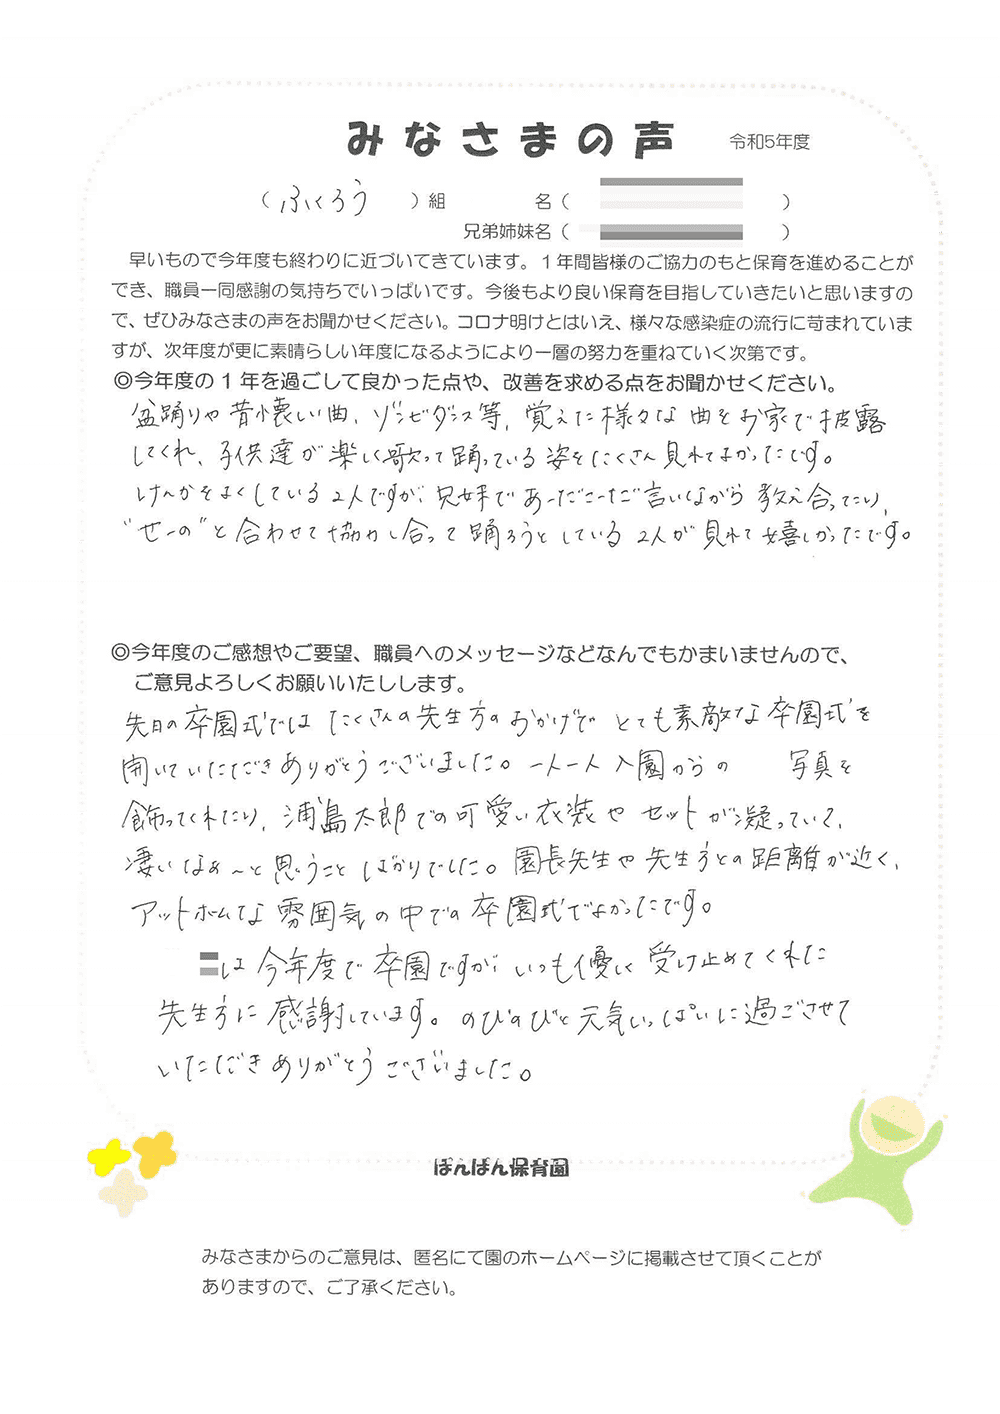 みなさまの声 令和5年度
（ ふくろう ）組 名（ ）
兄弟姉妹名（ ）
早いもので今年度も終わりに近づいてきています。1年間皆様のご協力のもと保育を進めることが
でき、職員一同感謝の気持ちでいっぱいです。今後もより良い保育を目指していきたいと思いますの
で、ぜひみなさまの声をお聞かせください。コロナ明けとはいえ、様々な感染症の流行に苛まれていま
すが、次年度が更に素晴らしい年度になるようにより一層の努力を重ねていく次第です。
◎今年度の1年を過ごして良かった点や、改善を求める点をお聞かせください。
盆踊りや昔懐しい曲、ゾンビダンス等、覚えた様々な曲をお家で披露
してくれ、子供達が楽しく歌って踊っている姿をたくさん見れてよかったです。
けんかをよくしている2人ですが、兄妹であーだこーだ言いながら教え合ってたり、
"せーの"と合わせて協力し合って踊ろうとしている2人が見れて嬉しかったです。
◎今年度のご感想やご要望、職員へのメッセージなどなんでもかまいませんので、
ご意見よろしくお願いいたしします。
先日の卒園式ではたくさんの先生方のおかげでとても素敵な卒園式を
開いていただきありがとうございました。一人一人入園からの 写真を
飾ってくれたり、浦島太郎での可愛い衣装やセットが凝っていて、
凄いなぁ〜と思うことばかりでした。園長先生や先生方との距離が近く、
アットホームな雰囲気の中での卒園式でよかったです。
は今年度で卒園ですが、いつも優しく受け止めてくれた
先生方に感謝しています。のびのびと元気いっぱいに過ごさせて
いただきありがとうございました。
ぽんぽん保育園
みなさまからのご意見は、匿名にて園のホームページに掲載させて頂くことが
ありますので、ご了承ください。